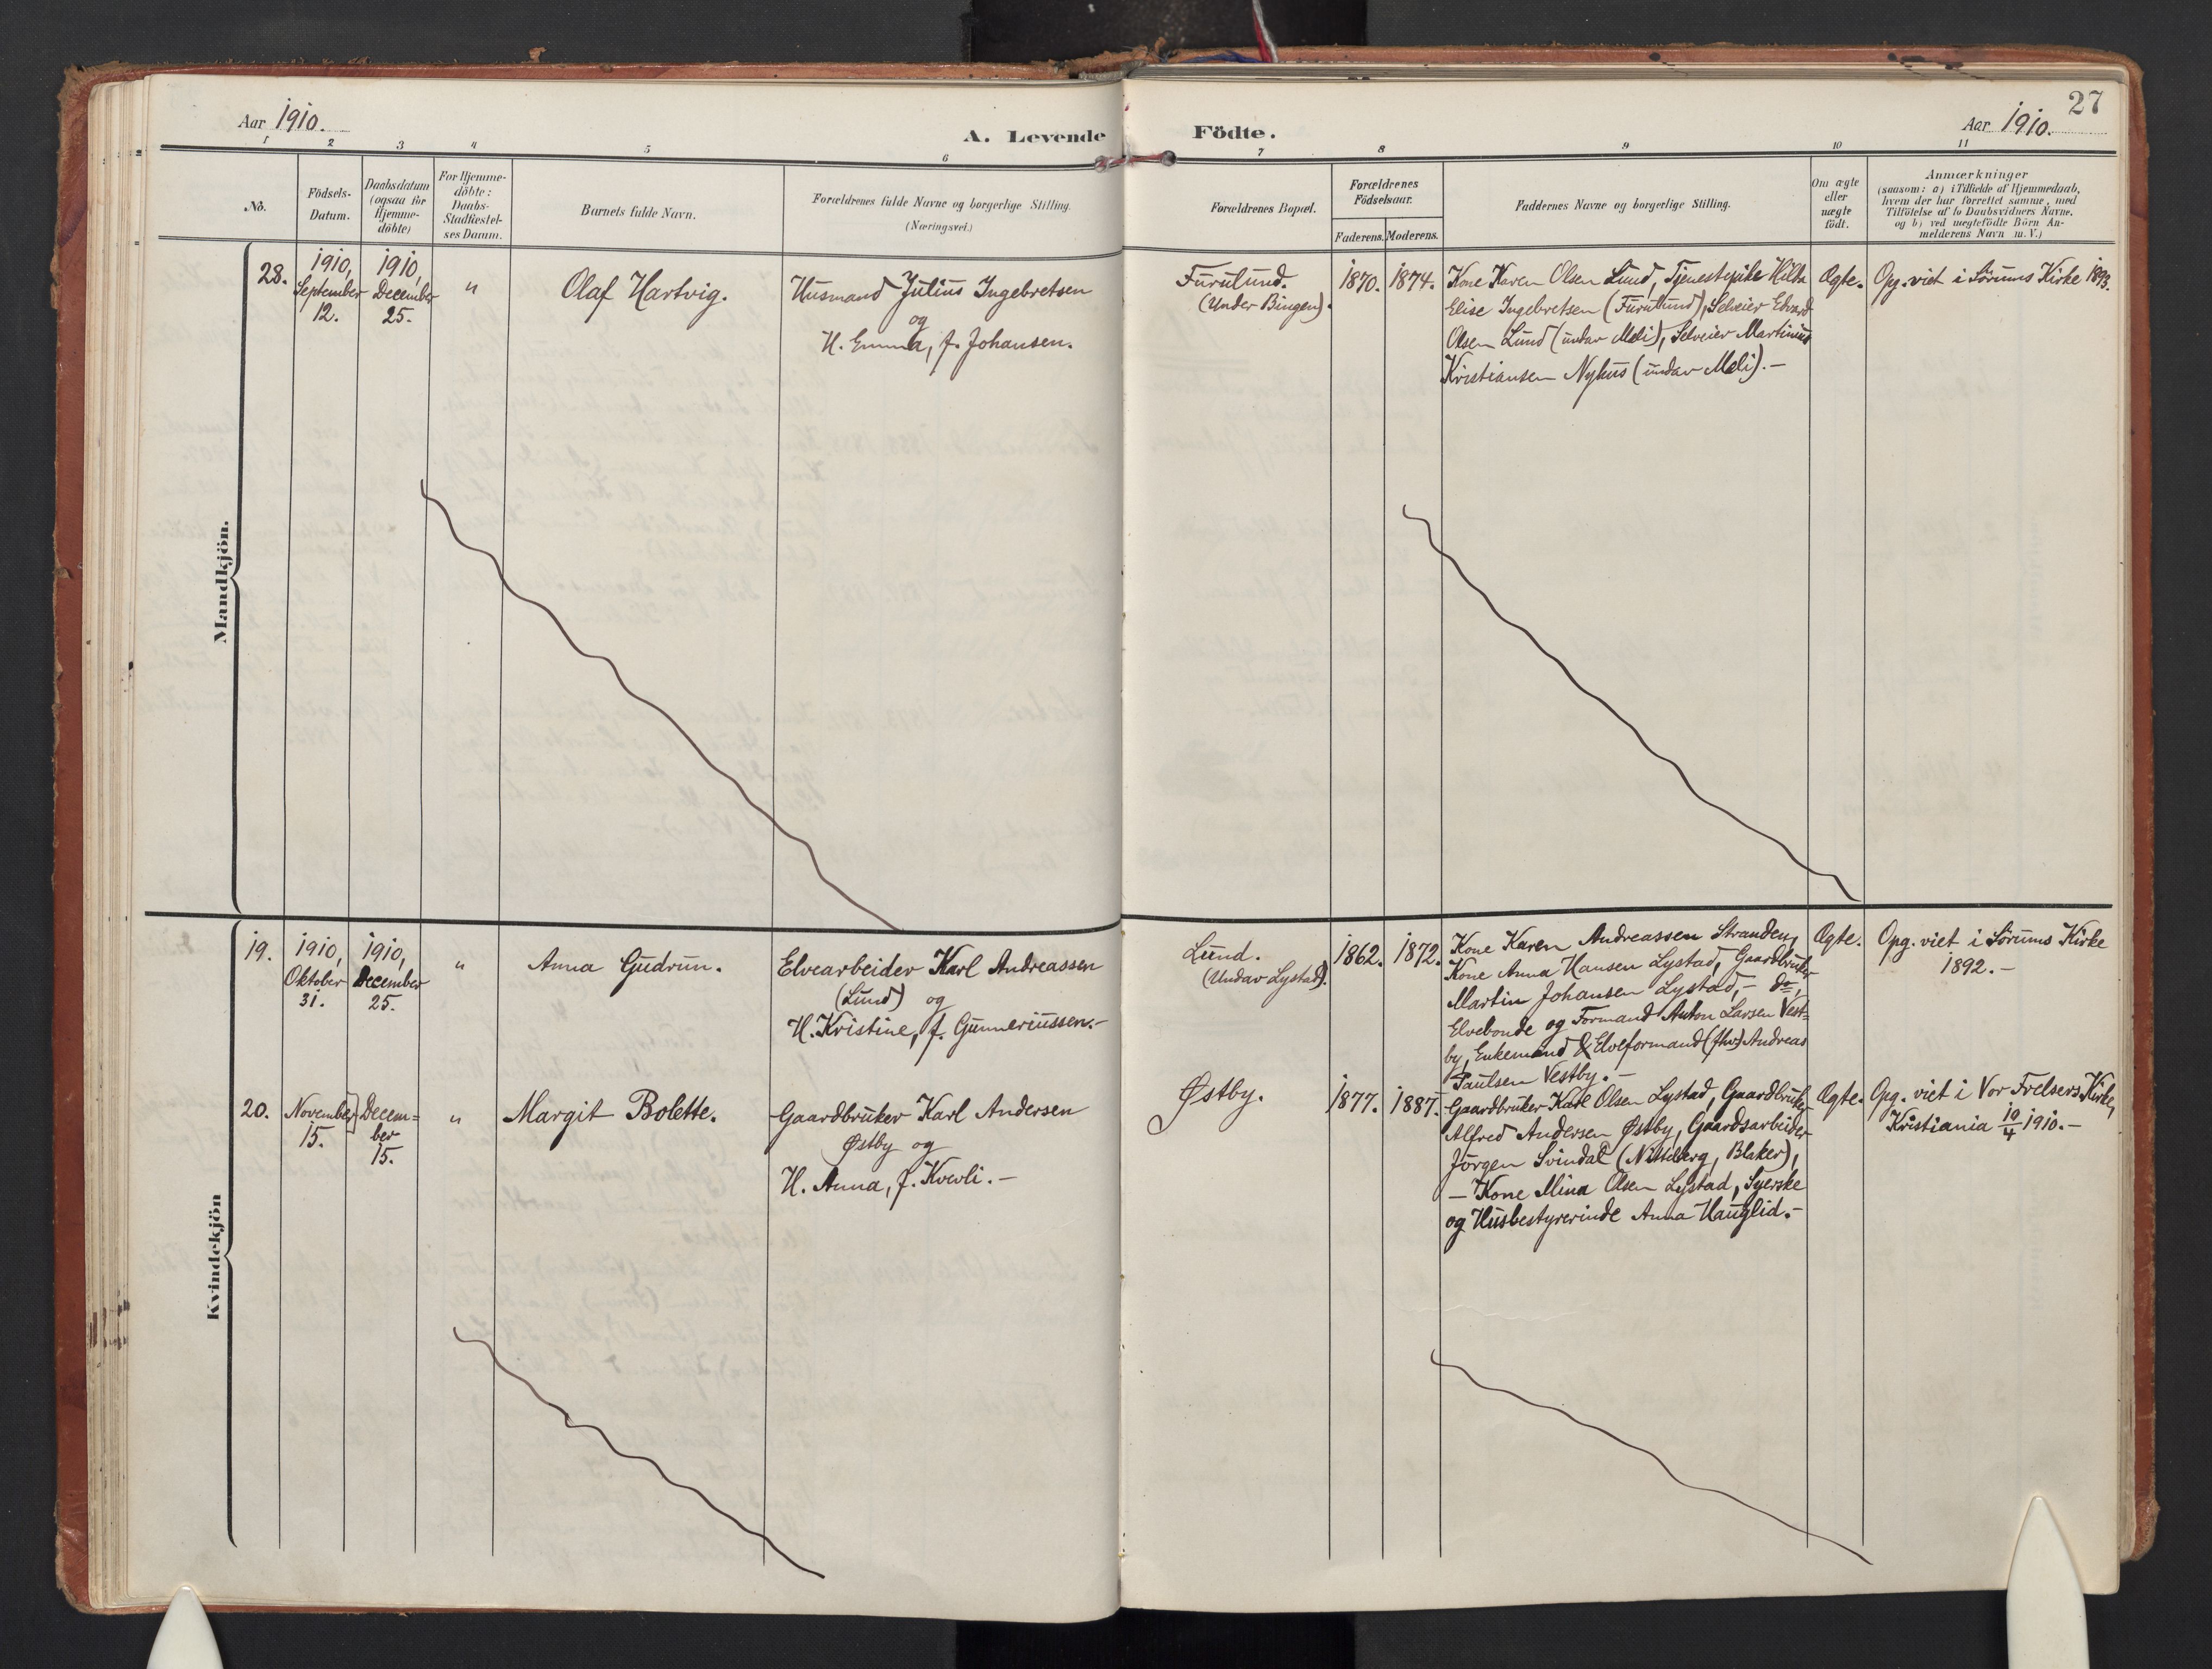 Aar 1910.
A. Levende Födte.
Aar 1910.
27
1 2 3 4 5 6 7 8 9 10 11
No.
Födsels-
Datum.
Daabsdatum
(ogsaa for
Hjemme-
döbte)
For Hjemme-
döbte:
Daabs-
Stadfæstel-
ses Datum.
Barnets fulde Navn.
Forældrenes fulde Navne og borgerlige Stilling.
(Næringsvei.)
Forældrenes Bopæl.
Forældrenes
Födselsaar.
Faderens. Moderens.
Faddernes Navne og borgerlige Stilling.
Om ægte
eller
uægte
födt.
Anmærkninger
(saasom: a) i Tilfælde af Hjemmedaab,
hvem der har forrettet samme, med
Tilföielse af to Daabsvidners Navne,
og b) ved uægtefödte Börn An-
melderens Navn m. V.)
Mandkjön.
28.
1910,
September
12.
1910,
December
25.
"
Olaf Hartvig.
Husmand Julius Ingebretsen
og
H. Emma, f. Johansen.
Furulund.
(Under Bingen).
1870.
1874.
Kone Karen Olsen Lund, Tjenestepike Hilda
Elise Ingebretsen (Furulund), Selveier Edvard
Olsen Lund (undar Meli), Selveier Martinius
Kristiansen Nyhus (undar Meli).-
Ægte.
Opg. viet i Sörums Kirke 1893.
Kvindekjön
19.
1910,
Oktober
31.
1910,
December
25.
"
Anna Gudrun.
Elvearbeider Karl Andreassen
(Lund) og
H. Kristine, f. Gunneriussen.-
Lund.
(Undar Lystad).
1862.
1872.
Kone Karen Andreassen Stranden,
Kone Anna Hansen Lystad, Gaardbruker
Martin Johansen Lystad,- do,
Elvebonde og Formand Anton Larsen Vest=
by, Enkemand & Elveformand (fhv) Andreas
Paulsen Vestby.-
Ægte.
Opg. viet i Sörums Kirke
1892.-
20.
November
15.
Decem=
ber
15.
"
Margit Bolette.
Gaardbruker Karl Andersen
Østby og
H. Anna, f. Kverli.-
Østby.
1877.
1887.
Gaardbruker Karl Olsen Lystad, Gaardbruker
Alfred Andersen Østby, Gaardsarbeider
Jörgen Svindal (Nitteberg, Blaker),
- Kone Mina Olsen Lystad, Syerske
og Husbestyrerinde Anna Hauglid.-
Ægte.
Opg. viet i Vor Frelsers Kirke,
Kristiania 10/4 1910.-